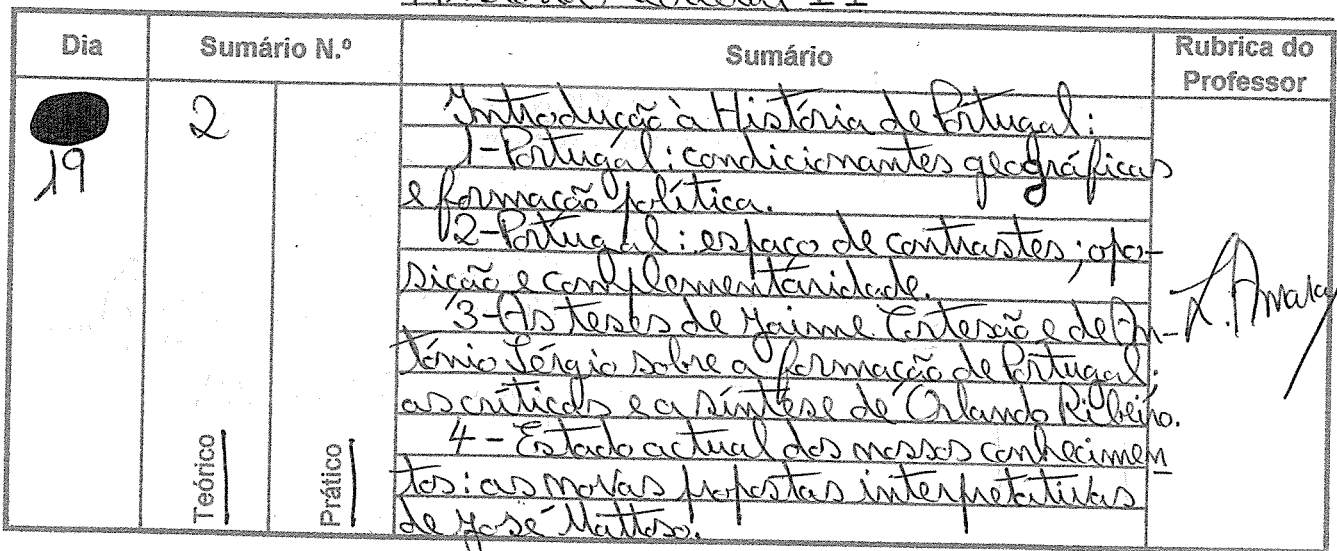 II
Dia Sumário N.º Sumário Rubrica do Professor
19 2 Introdução à História de Portugal:
1-Portugal: condicionantes geográficas
e formação política.
2-Portugal: espaço de contrastes; opo-
sição e complementaridade.
3-As teses de Jaime Cortesão e de An-
tónio Sérgio sobre a formação de Portugal:
as críticas e a síntese de Orlando Ribeiro.
4-Estado actual dos nossos conhecimen
tos: as novas propostas interpretativas
de José Mattoso.
Teórico
Prático
L. Amaral